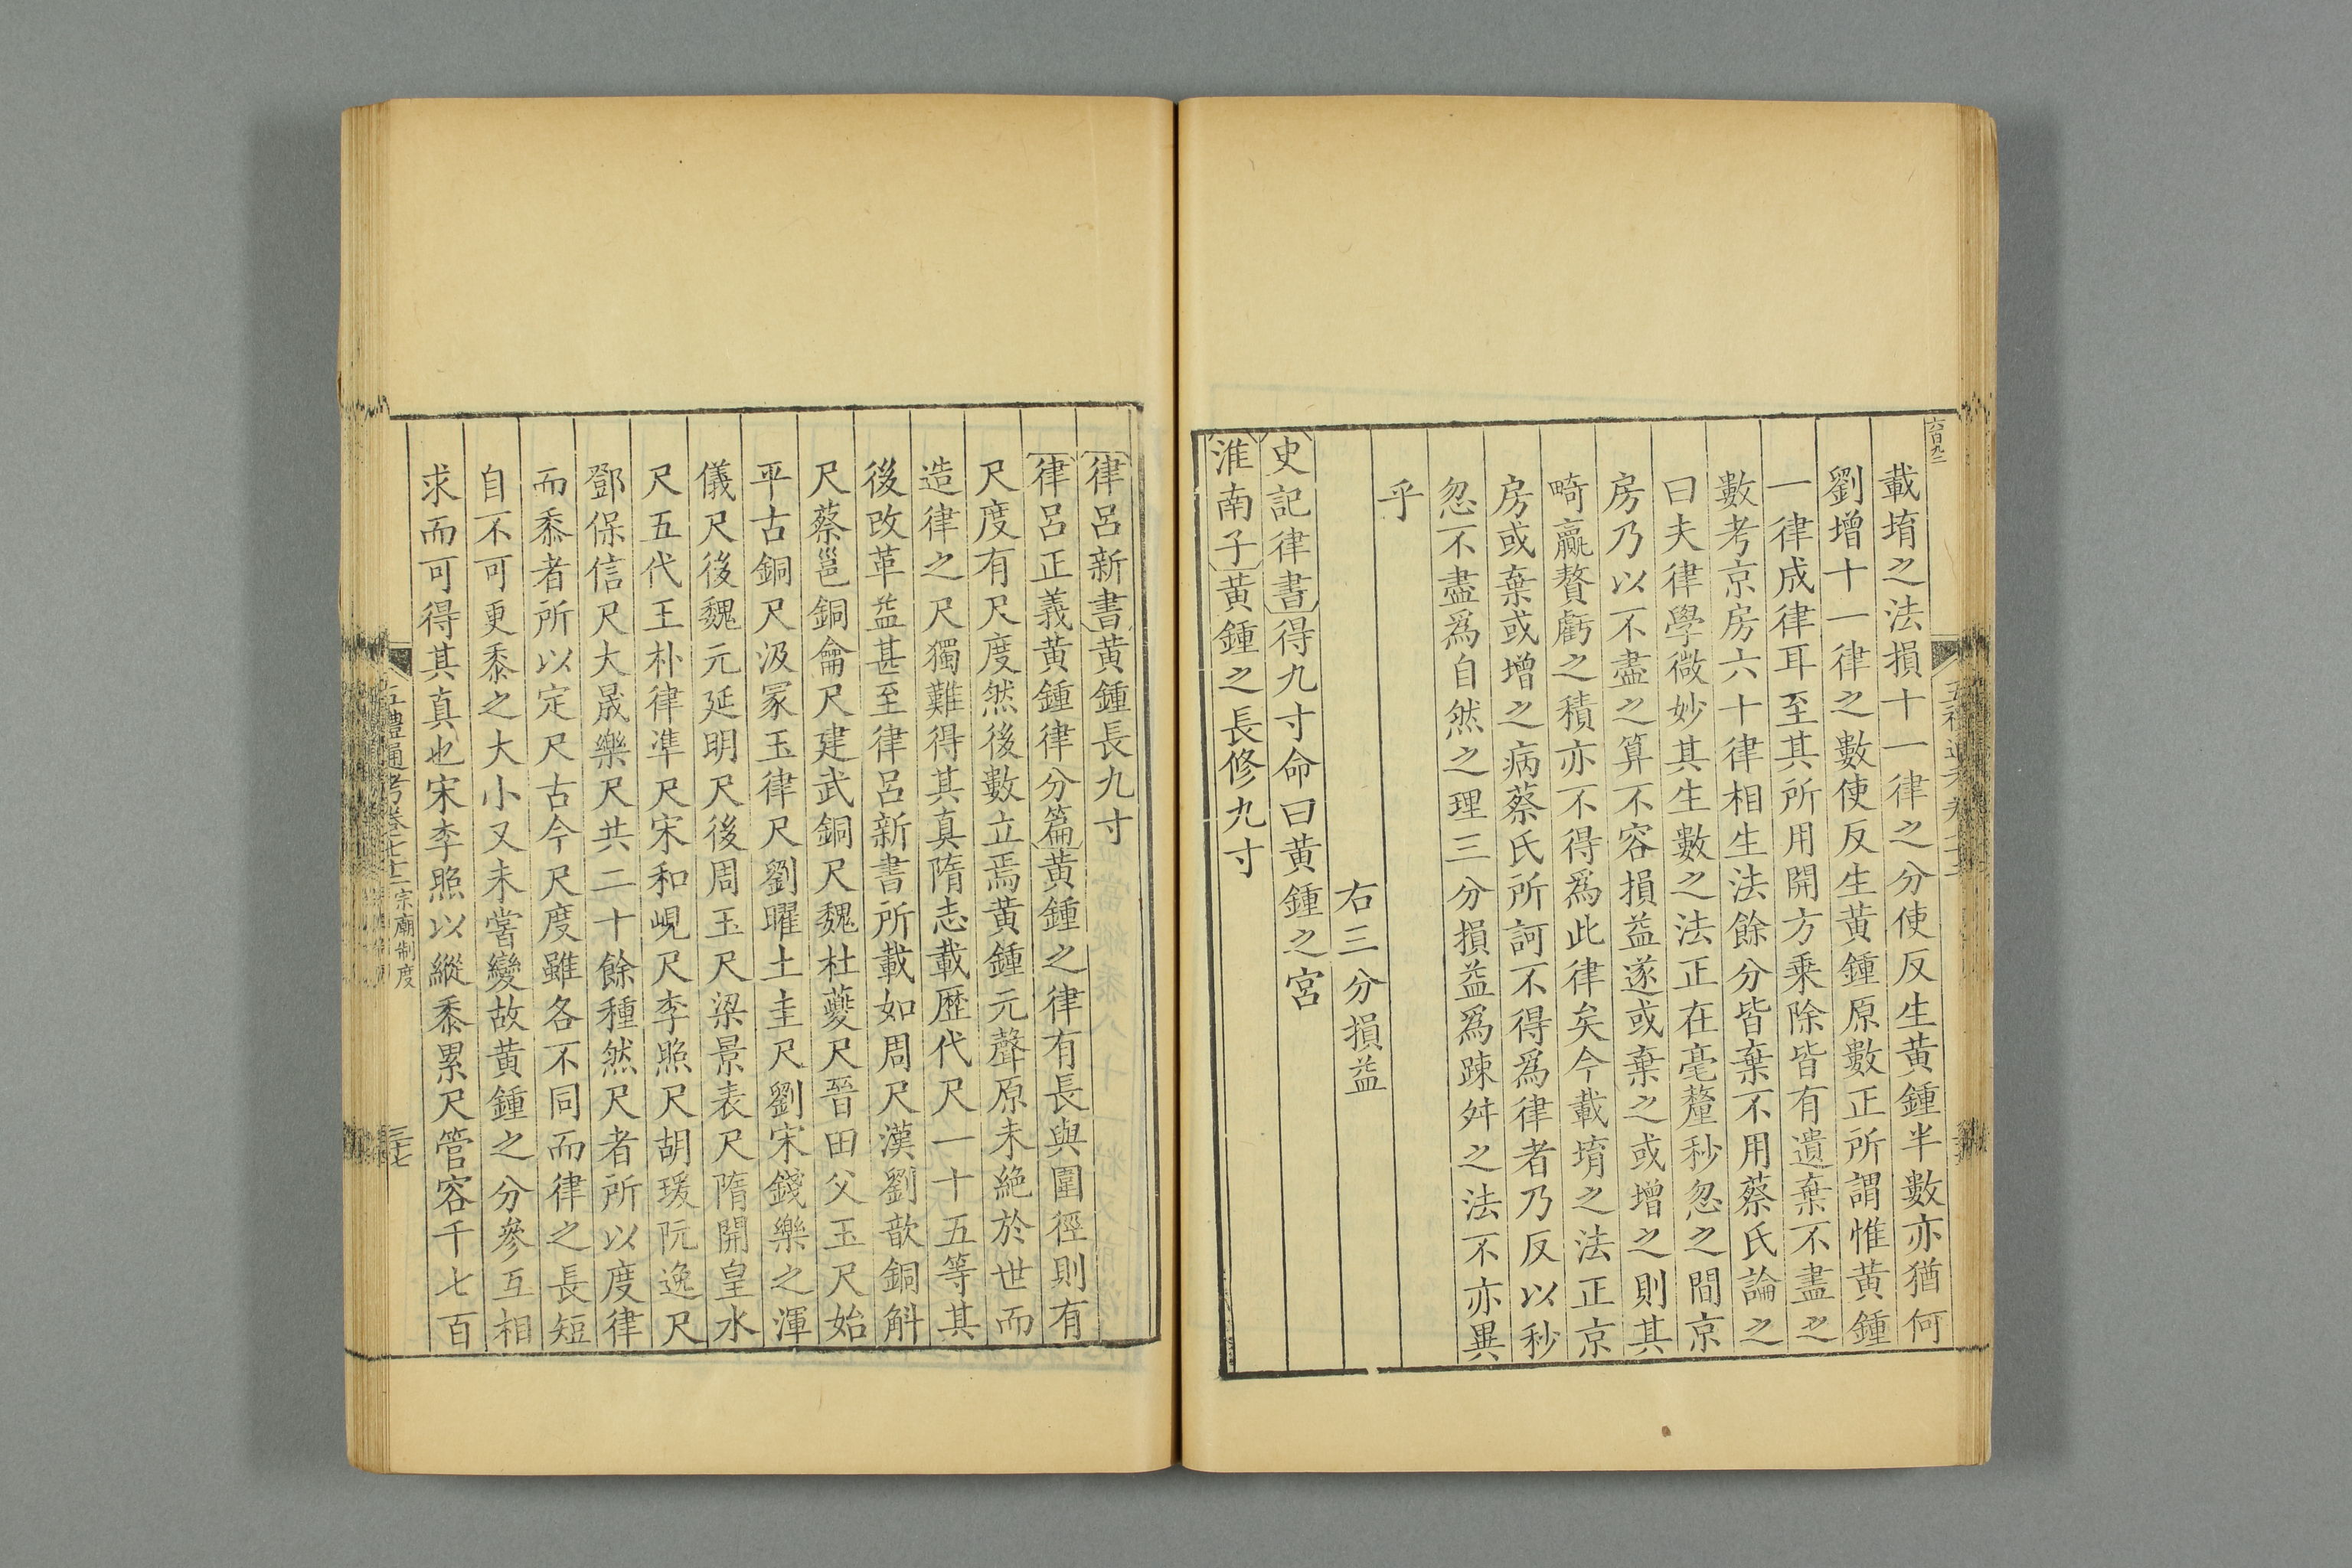 六百九二
載堉之法損十一律之分使反生黃鍾半數亦猶何
劉增十一律之數使反生黃鍾原數正所謂惟黃鍾
一律成律耳至其所用開方乗除皆有遺棄不盡之
數考京房六十律相生法餘分皆棄不用蔡氏論之
曰夫律學微妙其生數之法正在毫釐秒忽之間京
房乃以不盡之算不容損益遂或棄之或增之則其
畸贏贅虧之積亦不得爲此律矣今載堉之法正京
房或棄或增之病蔡氏所訶不得爲律者乃反以秒
忽不盡爲自然之理三分損益爲踈舛之法不亦異
乎
右三分損益
史記律書得九寸命曰黃鍾之宮
淮南子黃鍾之長修九寸
律呂新書黃鍾長九寸
律呂正義黃鍾律分篇黃鍾之律有長與圍徑則有
尺度有尺度然後數立焉黃鍾元聲原未絶於世而
造律之尺獨難得其真隋志載歷代尺一十五等其
後改革益甚至律呂新書所載如周尺漢劉歆銅斛
尺蔡邕銅龠尺建武銅尺魏杜夔尺晉田父玉尺始
平古銅尺汲冢玉律尺劉曜土圭尺劉宋錢樂之渾
儀尺後魏元延明尺後周玉尺梁景表尺隋開皇水
尺五代王朴律準尺宋和峴尺李照尺胡瑗阮逸尺
鄧保信尺大晟樂尺共二十餘種然尺者所以度律
而黍者所以定尺古今尺度雖各不同而律之長短
自不可更黍之大小又未嘗變故黃鍾之分參互相
求而可得其真也宋李照以縱黍累尺管容千七百
五禮通考卷七十二 宗廟制度
三十七